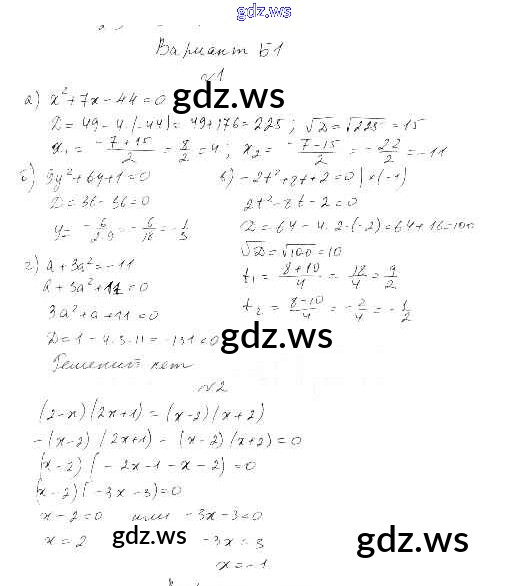 gdz.ws
Вариант Б1
№1
а) x²+7x-44=0
gdz.ws
D=49-4·(-44)=49+176=225; √D=√225=15
x₁=(-7+15)/2=8/2=4; x₂=(-7-15)/2=-22/2=-11
б) 9y²+6y+1=0
D=36-36=0
y=-6/(2·9)=-6/18=-1/3
в) -2t²+8t+2=0 |×(-1)
2t²-8t-2=0
D=64-4·2·(-2)=64+16=100
√D=√100=10
t₁=(8+10)/4=18/4=9/2
t₂=(8-10)/4=-2/4=-1/2
г) a+3a²=-11
a+3a²+11=0
3a²+a+11=0
D=1-4·3·11=-131<0
gdz.ws
Решений нет
№2
(2-x)(2x+1)=(x-2)(x+2)
-(x-2)(2x+1)-(x-2)(x+2)=0
(x-2)(-2x-1-x-2)=0
(x-2)(-3x-3)=0
x-2=0 или -3x-3=0
x=2 -3x=3
x=-1
gdz.ws
gdz.ws